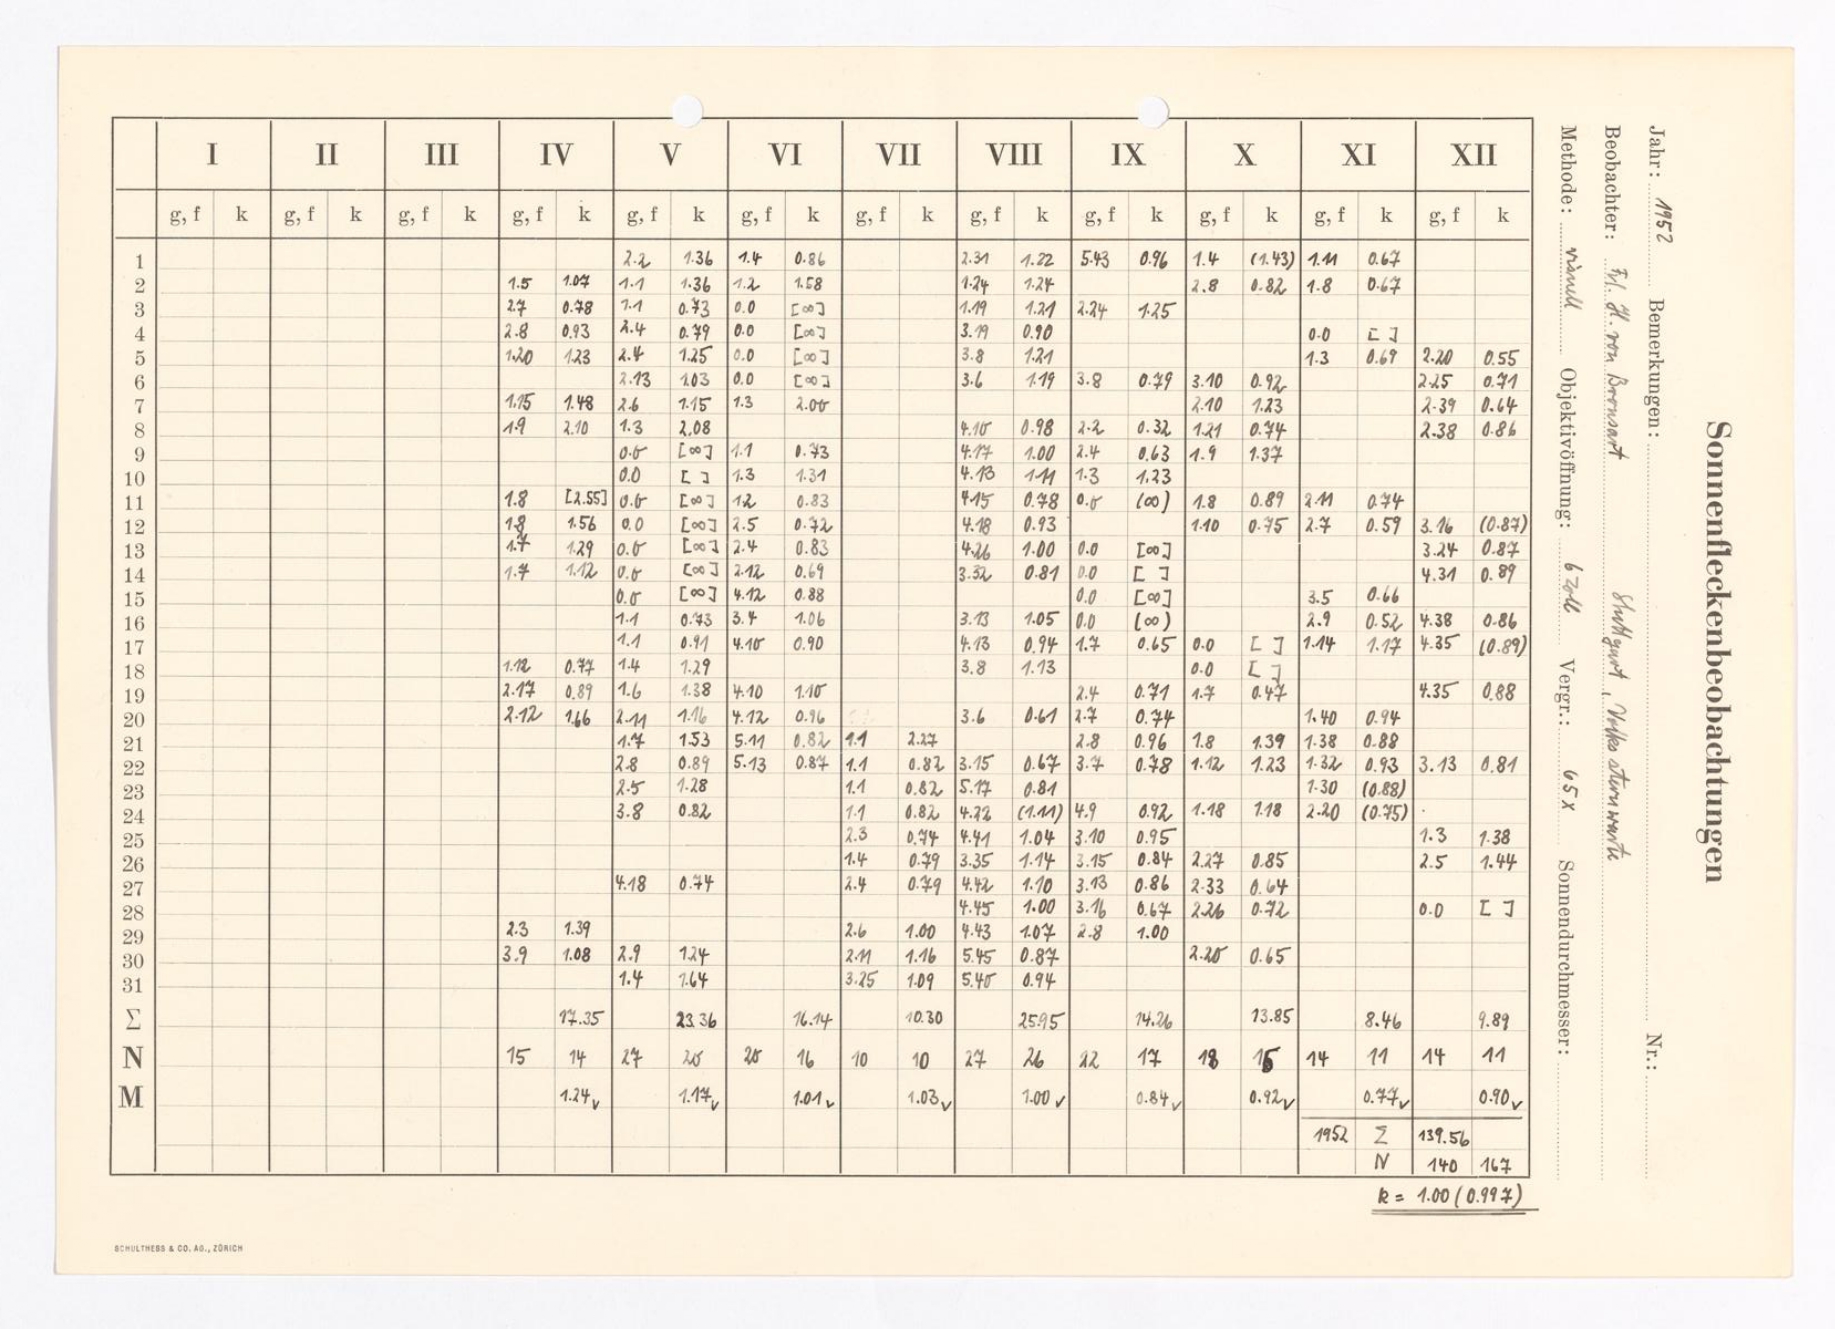 Sonnenfleckenbeobachtungen
Jahr: 1952 Bemerkungen: Nr.:
Beobachter: Frl. H. von Bronsart Stuttgart, Volkssternwarte
Methode: visuell Objektivöffnung: 6 Zoll Vergr.: 65x Sonnendurchmesser:
I II III IV V VI VII VIII IX X XI XII
g, f k g, f k g, f k g, f k g, f k g, f k g, f k g, f k g, f k g, f k g, f k g, f k
1 2.2 1.36 1.4 0.86 2.31 1.22 5.43 0.96 1.4 (1.43) 1.11 0.67
2 1.5 1.07 1.1 1.36 1.2 1.58 1.24 1.24 2.8 0.82 1.8 0.67
3 2.7 0.78 1.1 0.73 0.0 [∞] 1.19 1.21 2.24 1.25
4 2.8 0.93 2.4 0.79 0.0 [∞] 3.19 0.90 0.0 [ ]
5 1.20 1.23 2.4 1.25 0.0 [∞] 3.8 1.21 1.3 0.69 2.20 0.55
6 2.13 1.03 0.0 [∞] 3.6 1.19 3.8 0.79 3.10 0.92 2.25 0.71
7 1.15 1.48 2.6 1.15 1.3 2.00 2.10 1.23 2.39 0.64
8 1.9 2.10 1.3 2.08 4.10 0.98 2.2 0.32 1.21 0.74 2.38 0.86
9 0.0 [∞] 1.1 0.73 4.17 1.00 2.4 0.63 1.9 1.37
10 0.0 [ ] 1.3 1.31 4.13 1.11 1.3 1.23
11 1.8 [2.55] 0.0 [∞] 1.2 0.83 4.15 0.78 0.0 (∞) 1.8 0.89 2.11 0.74
12 1.8 1.56 0.0 [∞] 2.5 0.72 4.18 0.93 1.10 0.75 2.7 0.59 3.16 (0.87)
13 1.7 1.29 0.0 [∞] 2.4 0.83 4.26 1.00 0.0 [∞] 3.24 0.87
14 1.7 1.12 0.0 [∞] 2.12 0.69 3.32 0.81 0.0 [ ] 4.31 0.89
15 0.0 [∞] 4.12 0.88 0.0 [∞] 3.5 0.66
16 1.1 0.73 3.7 1.06 3.13 1.05 0.0 (∞) 2.9 0.52 4.38 0.86
17 1.1 0.91 4.10 0.90 4.13 0.94 1.7 0.65 0.0 [ ] 1.14 1.17 4.35 (0.89)
18 1.12 0.77 1.4 1.29 3.8 1.13 0.0 [ ]
19 2.17 0.89 1.6 1.38 4.10 1.10 2.4 0.71 1.7 0.47 4.35 0.88
20 2.12 1.66 2.11 1.16 4.12 0.96 3.6 0.61 2.7 0.74 1.40 0.94
21 1.7 1.53 5.11 0.82 1.1 2.27 2.8 0.96 1.8 1.39 1.38 0.88
22 2.8 0.89 5.13 0.87 1.1 0.82 3.15 0.67 3.7 0.78 1.12 1.23 1.32 0.93 3.13 0.81
23 2.5 1.28 1.1 0.82 5.17 0.81 1.30 (0.88)
24 3.8 0.82 1.1 0.82 4.22 (1.11) 4.9 0.92 1.18 1.18 2.20 (0.75)
25 2.3 0.74 4.41 1.04 3.10 0.95 1.3 1.38
26 1.4 0.79 3.35 1.14 3.15 0.84 2.27 0.85 2.5 1.44
27 4.18 0.74 2.4 0.79 4.42 1.10 3.13 0.86 2.33 0.64
28 4.45 1.00 3.16 0.67 2.26 0.72 0.0 [ ]
29 2.3 1.39 2.6 1.00 4.43 1.07 2.8 1.00
30 3.9 1.08 2.9 1.24 2.11 1.16 5.45 0.87 2.20 0.65
31 1.4 1.64 3.25 1.09 5.40 0.94
Σ 17.35 23.36 16.14 10.30 25.95 14.26 13.85 8.46 9.89
N 15 14 27 20 20 16 10 10 27 26 22 17 18 15 14 11 14 11
M 1.24✓ 1.17✓ 1.01✓ 1.03✓ 1.00✓ 0.84✓ 0.92✓ 0.77✓ 0.90✓
1952 Σ 139.56
N 140 167
k = 1.00 (0.997)
SCHULTHESS & CO. AG., ZÜRICH